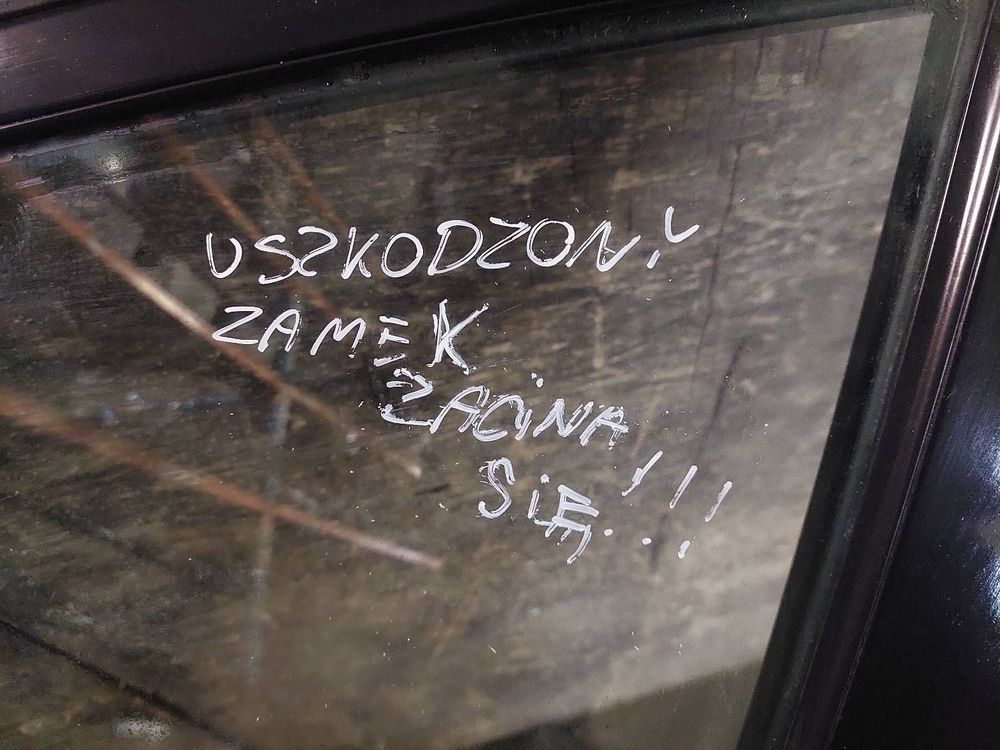 USZKODZONY
ZAMEK
ZACINA
SIĘ!!!